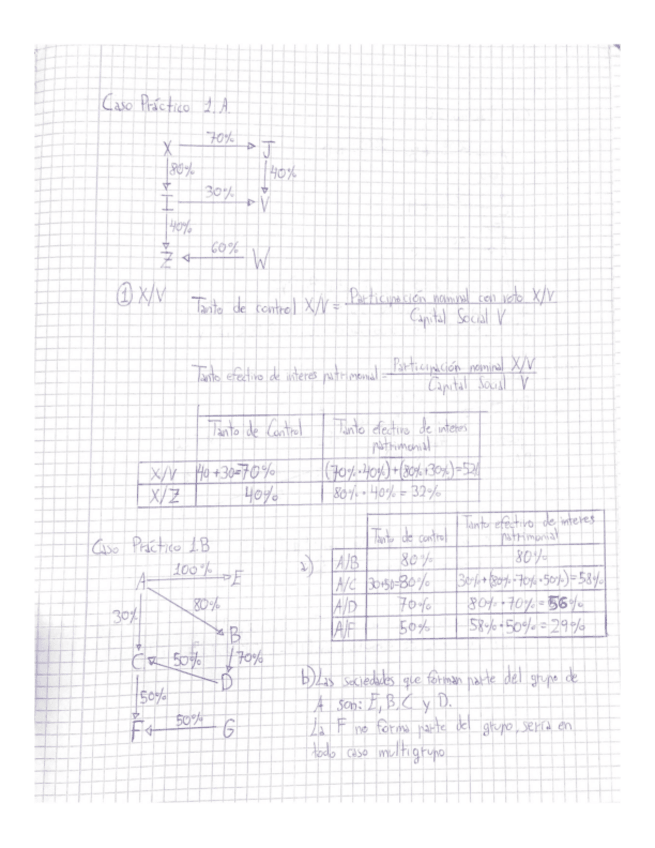 Caso Práctico 1.A.
X 70% J
80% 40%
I 30% V
40%
Z 60% W
① X/V Tanto de control X/V = Participación nominal con voto X/V
Capital Social V
Tanto efectivo de interes patrimonial = Participación nominal X/V
Capital Social V
Tanto de Control Tanto efectivo de interes
patrimonial
X/V 40+30=70% (70%·40%)+(80%·30%)=52%
X/Z 40% 80%·40% = 32%
Caso Práctico 1.B
A 100% E
30% 80%
B
C 50% 70%
D
50%
F 50% G
a) Tanto de control Tanto efectivo de interes
patrimonial
A/B 80% 80%
A/C 30+50=80% 30%+(80%·70%·50%)=58%
A/D 70% 80%·70% = 56%
A/F 50% 58%·50% = 29%
b) Las sociedades que forman parte del grupo de
A son: E, B, C y D.
La F no forma parte del grupo, sería en
todo caso multigrupo